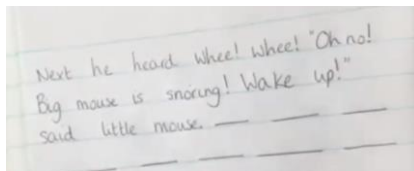 Next he heard whee! whee! "Oh no!
Big mouse is snoring! Wake up!"
said little mouse.